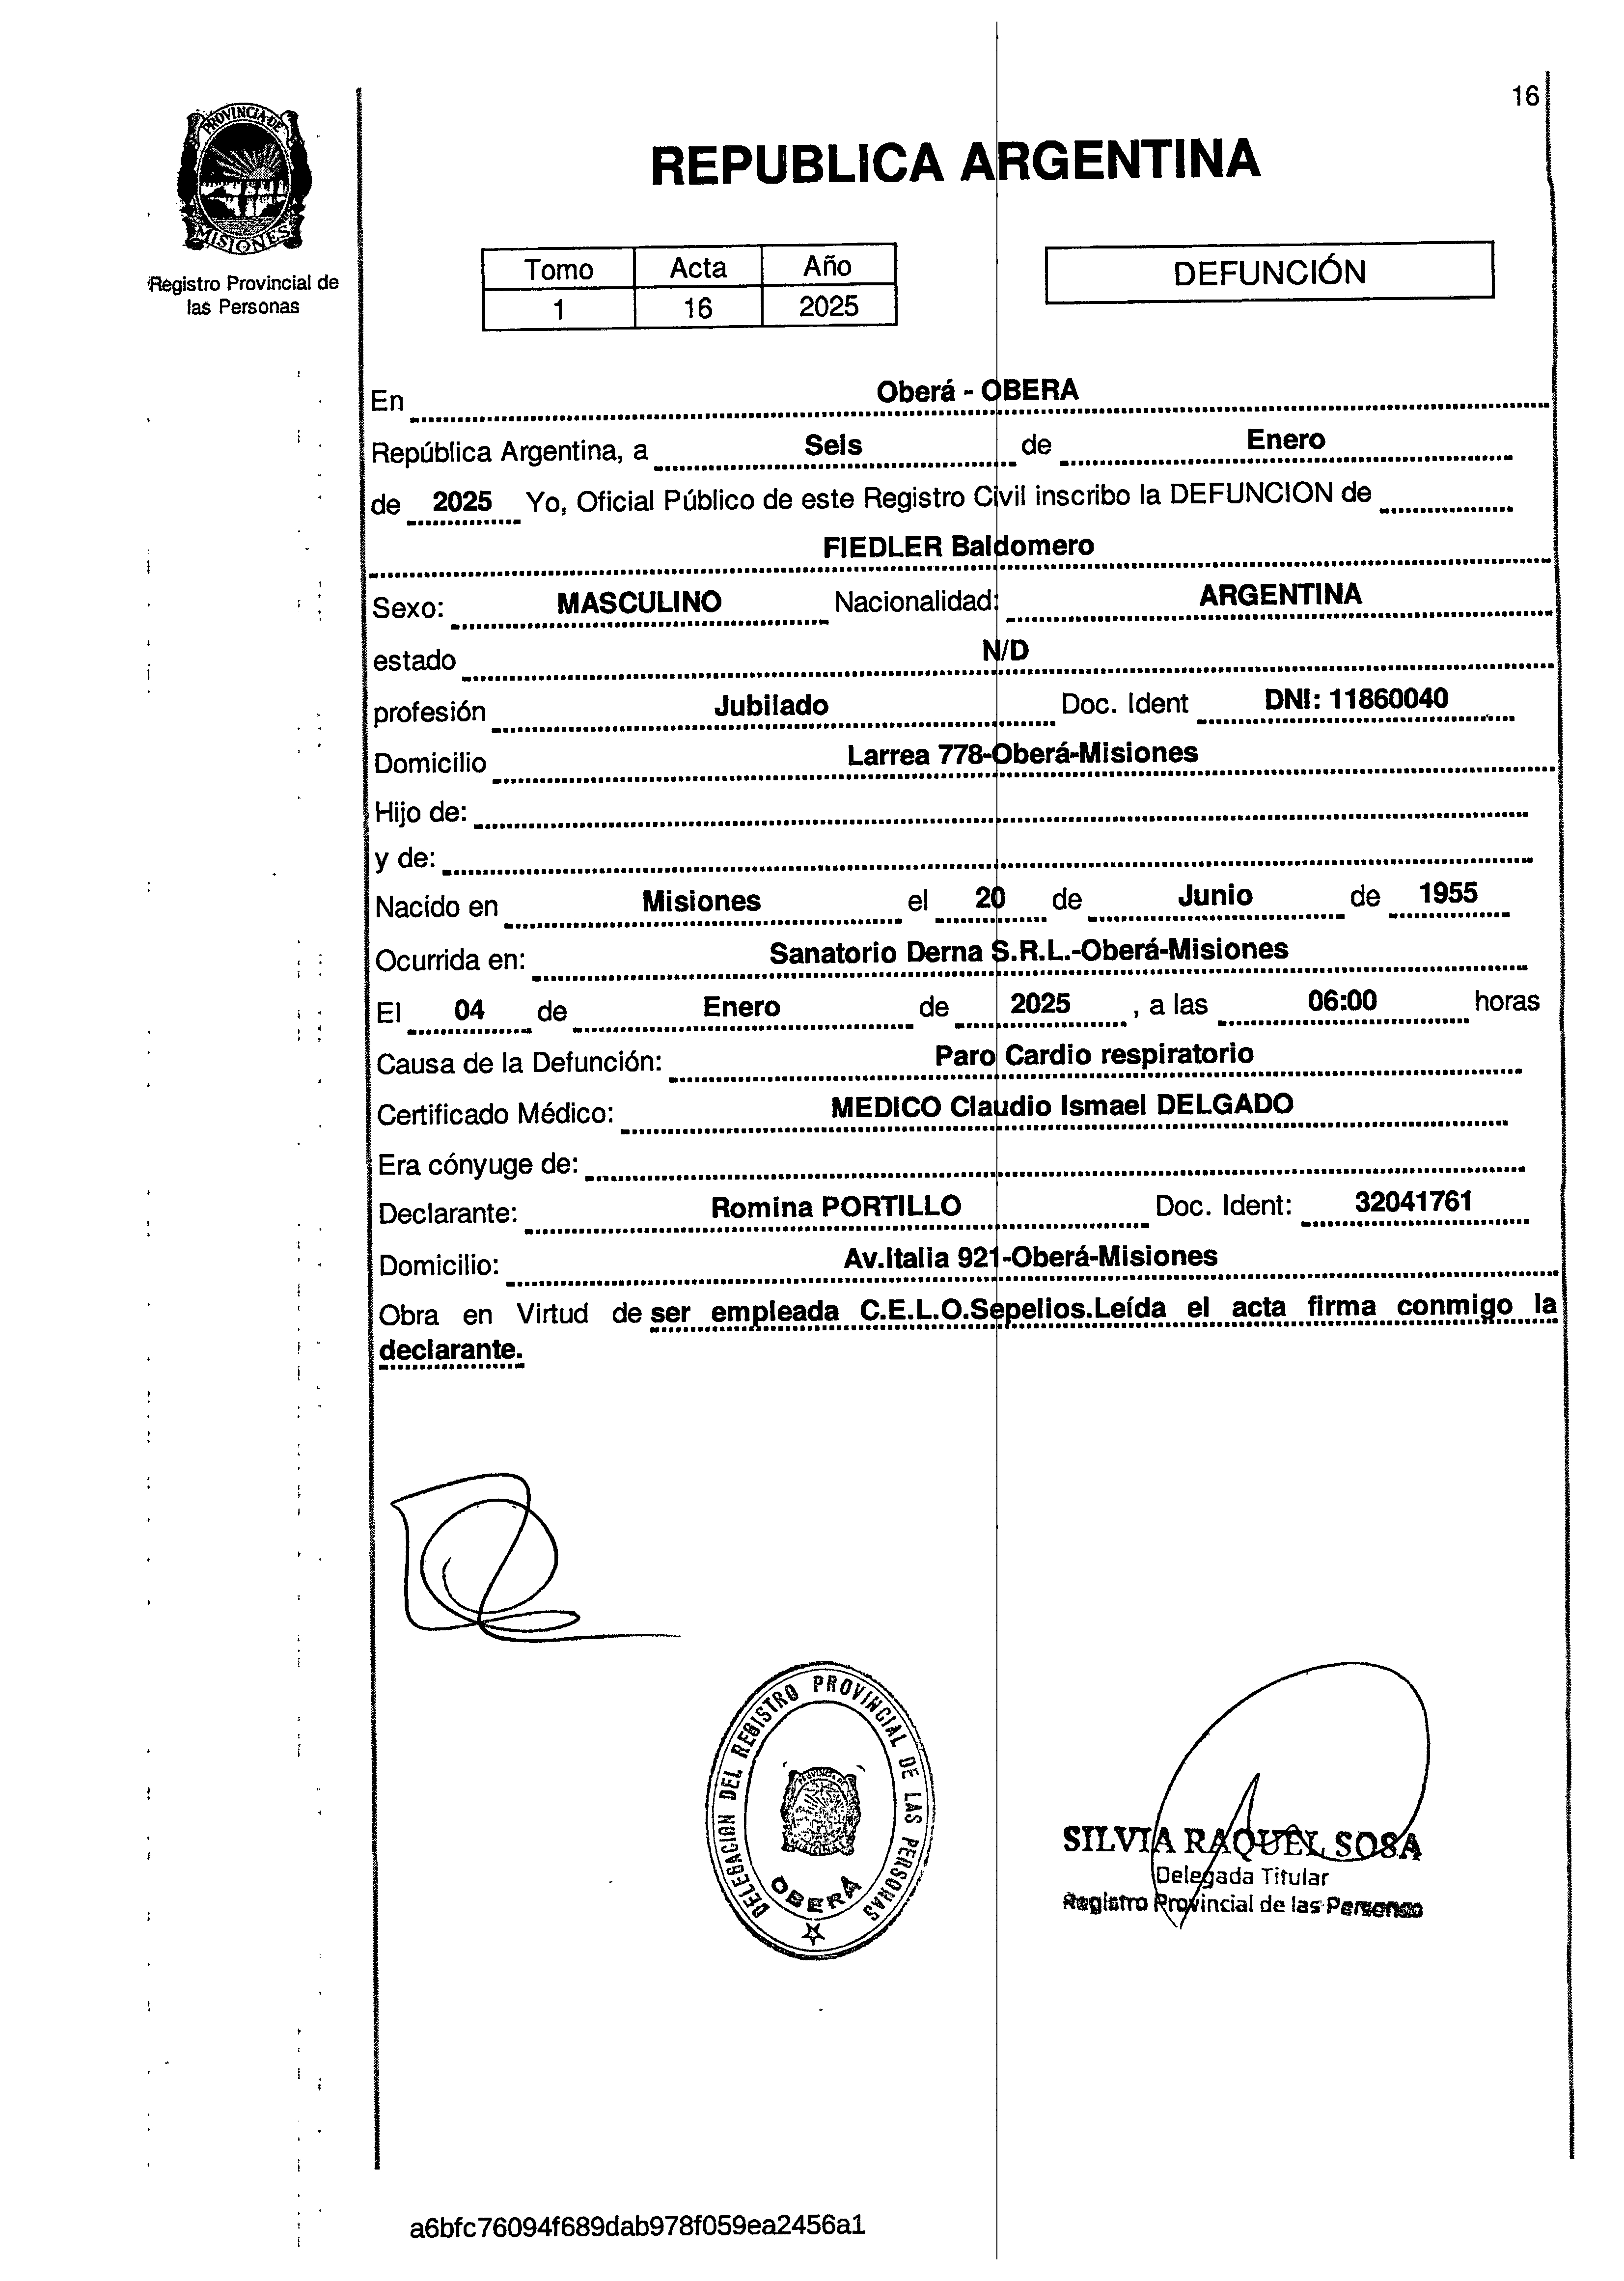 16
PROVINCIA DE
MISIONES
Registro Provincial de
las Personas
REPUBLICA ARGENTINA
Tomo Acta Año
1 16 2025
DEFUNCIÓN
En Oberá - OBERA
República Argentina, a Seis de Enero
de 2025 Yo, Oficial Público de este Registro Civil inscribo la DEFUNCION de
FIEDLER Baldomero
Sexo: MASCULINO Nacionalidad: ARGENTINA
estado N/D
profesión Jubilado Doc. Ident DNI: 11860040
Domicilio Larrea 778-Oberá-Misiones
Hijo de:
y de:
Nacido en Misiones el 20 de Junio de 1955
Ocurrida en: Sanatorio Derna S.R.L.-Oberá-Misiones
El 04 de Enero de 2025 , a las 06:00 horas
Causa de la Defunción: Paro Cardio respiratorio
Certificado Médico: MEDICO Claudio Ismael DELGADO
Era cónyuge de:
Declarante: Romina PORTILLO Doc. Ident: 32041761
Domicilio: Av.Italia 921-Oberá-Misiones
Obra en Virtud de ser empleada C.E.L.O.Sepelios.Leída el acta firma conmigo la
declarante.
DELEGACION DEL REGISTRO PROVINCIAL DE LAS PERSONAS
OBERÁ
SILVIA RAQUEL SOSA
Delegada Titular
Registro Provincial de las Personas
a6bfc76094f689dab978f059ea2456a1